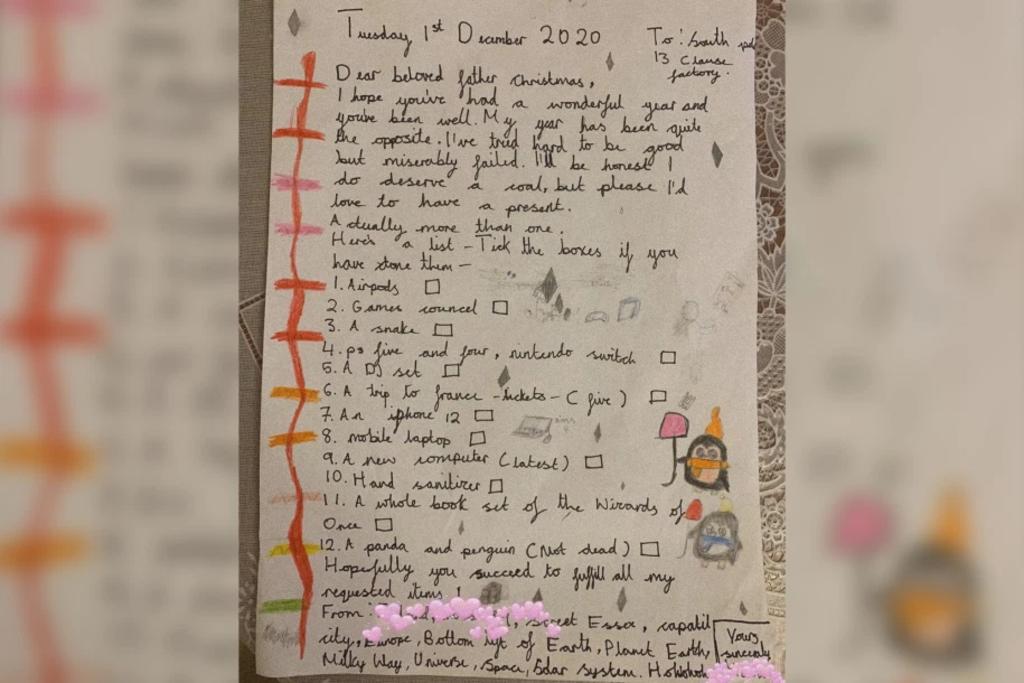 Tuesday 1st December 2020
To: South pol
13 Clause
factory.
Dear beloved father christmas,
I hope you've had a wonderful year and
you've been well. My year has been quite
the opposite. I've tried hard to be good
but miserably failed. I'll be honest I
do deserve a coal, but please I'd
love to have a present.
Actually more than one.
Here's a list - Tick the boxes if you
have done them -
1. Airpods
2. Games councel
3. A snake
4. ps five and four, nintendo switch
5. A DJ set
6. A trip to france - tickets - ( five )
7. An iphone 12
8. mobile laptop
9. A new computer (latest)
10. Hand sanitizer
11. A whole book set of the Wizards of
Once
12. A panda and penguin (Not dead)
Hopefully you succeed to fulfill all my
requested items !
From: street Essex, capatil
city, Europe, Bottom left of Earth, Planet Earth,
Milky Way, Universe, Space, Solar system. Hohohoh
Yours
sincerely